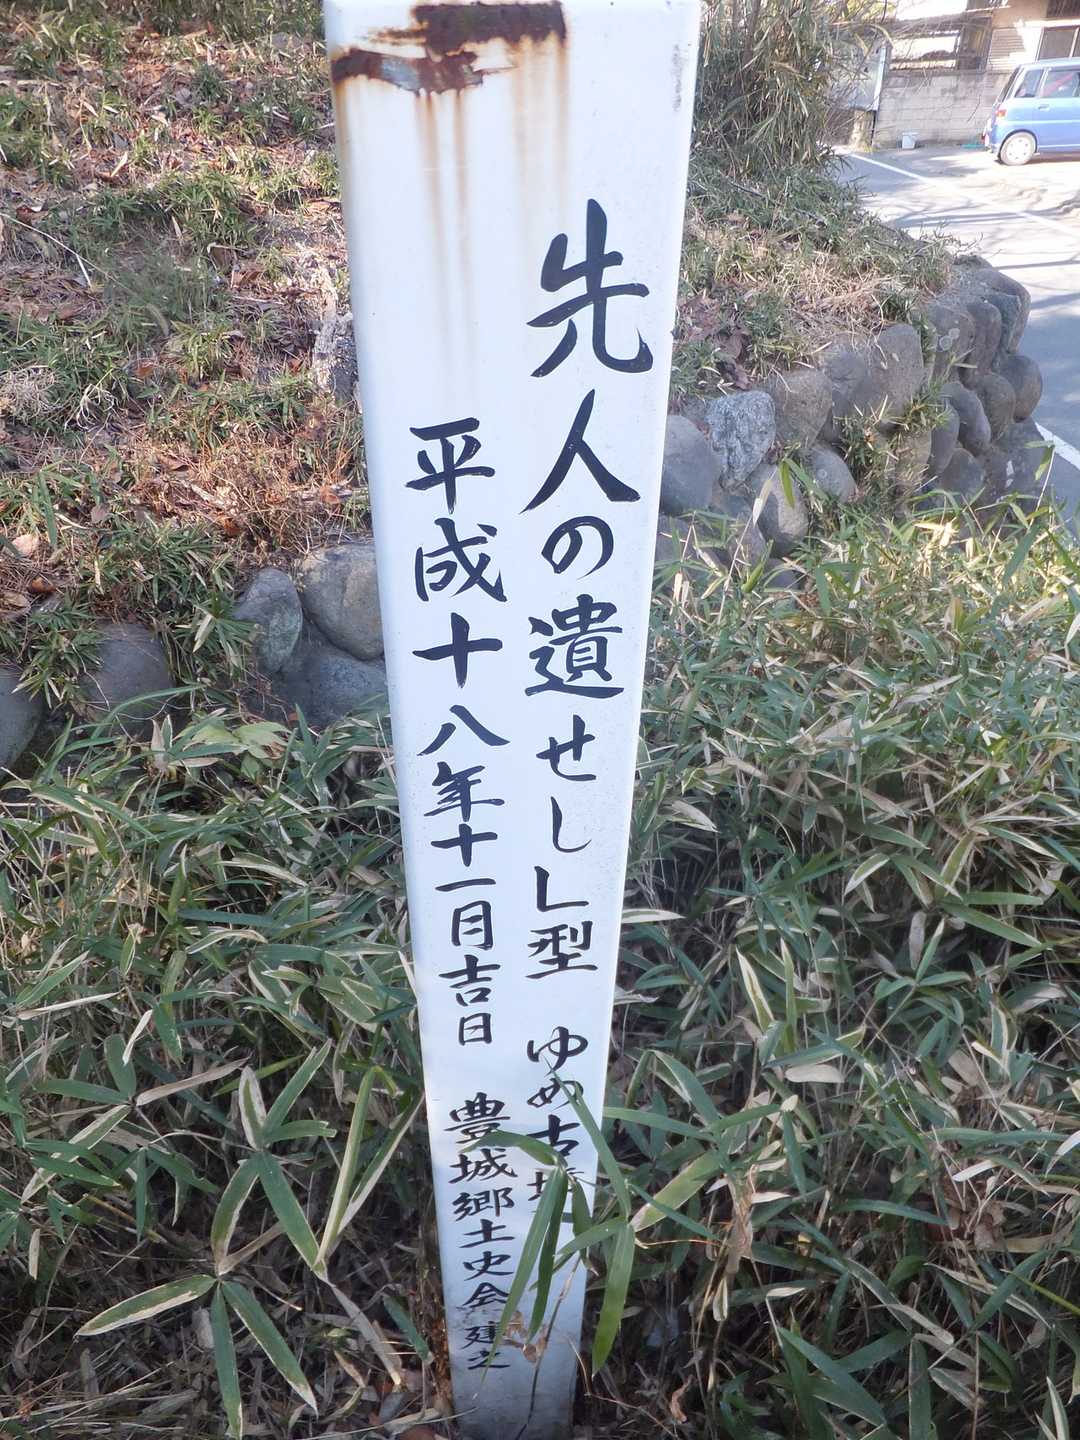 先人の遺せしL型 ゆめ古墳
平成十八年十一月吉日 豊城郷土史会 建之